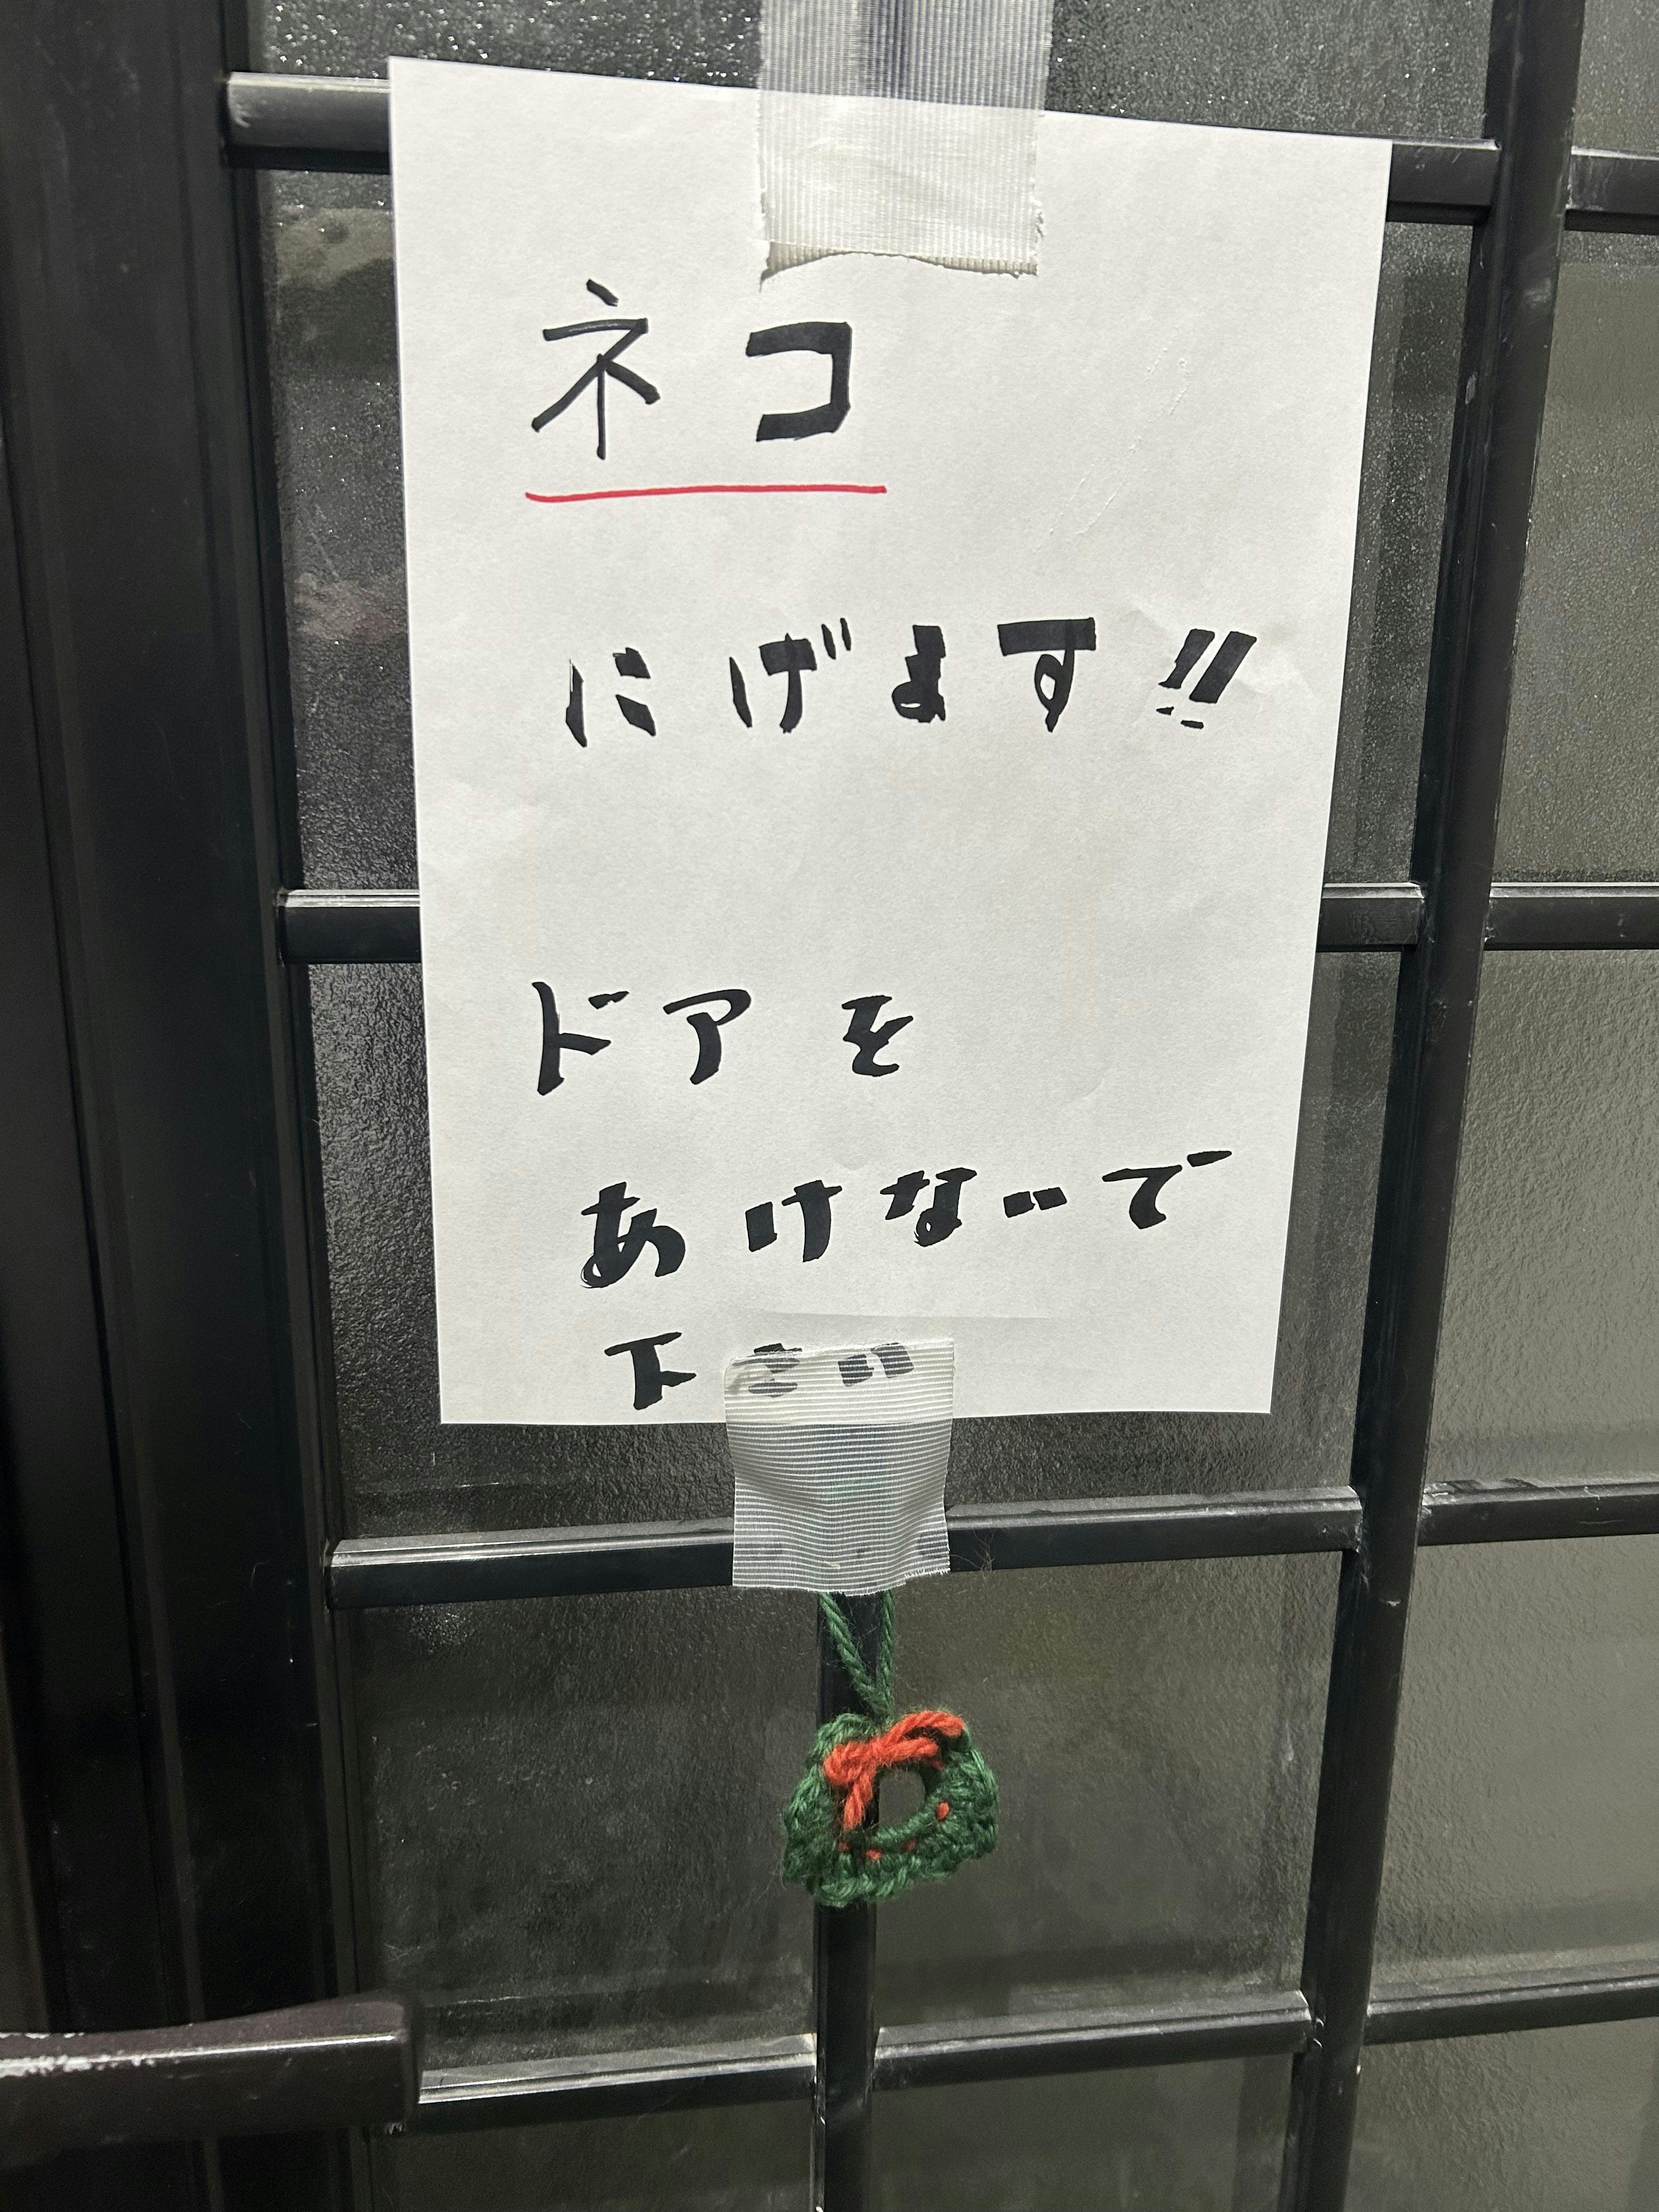 ネコ
にげます!!
ドアを
あけないで
下さい